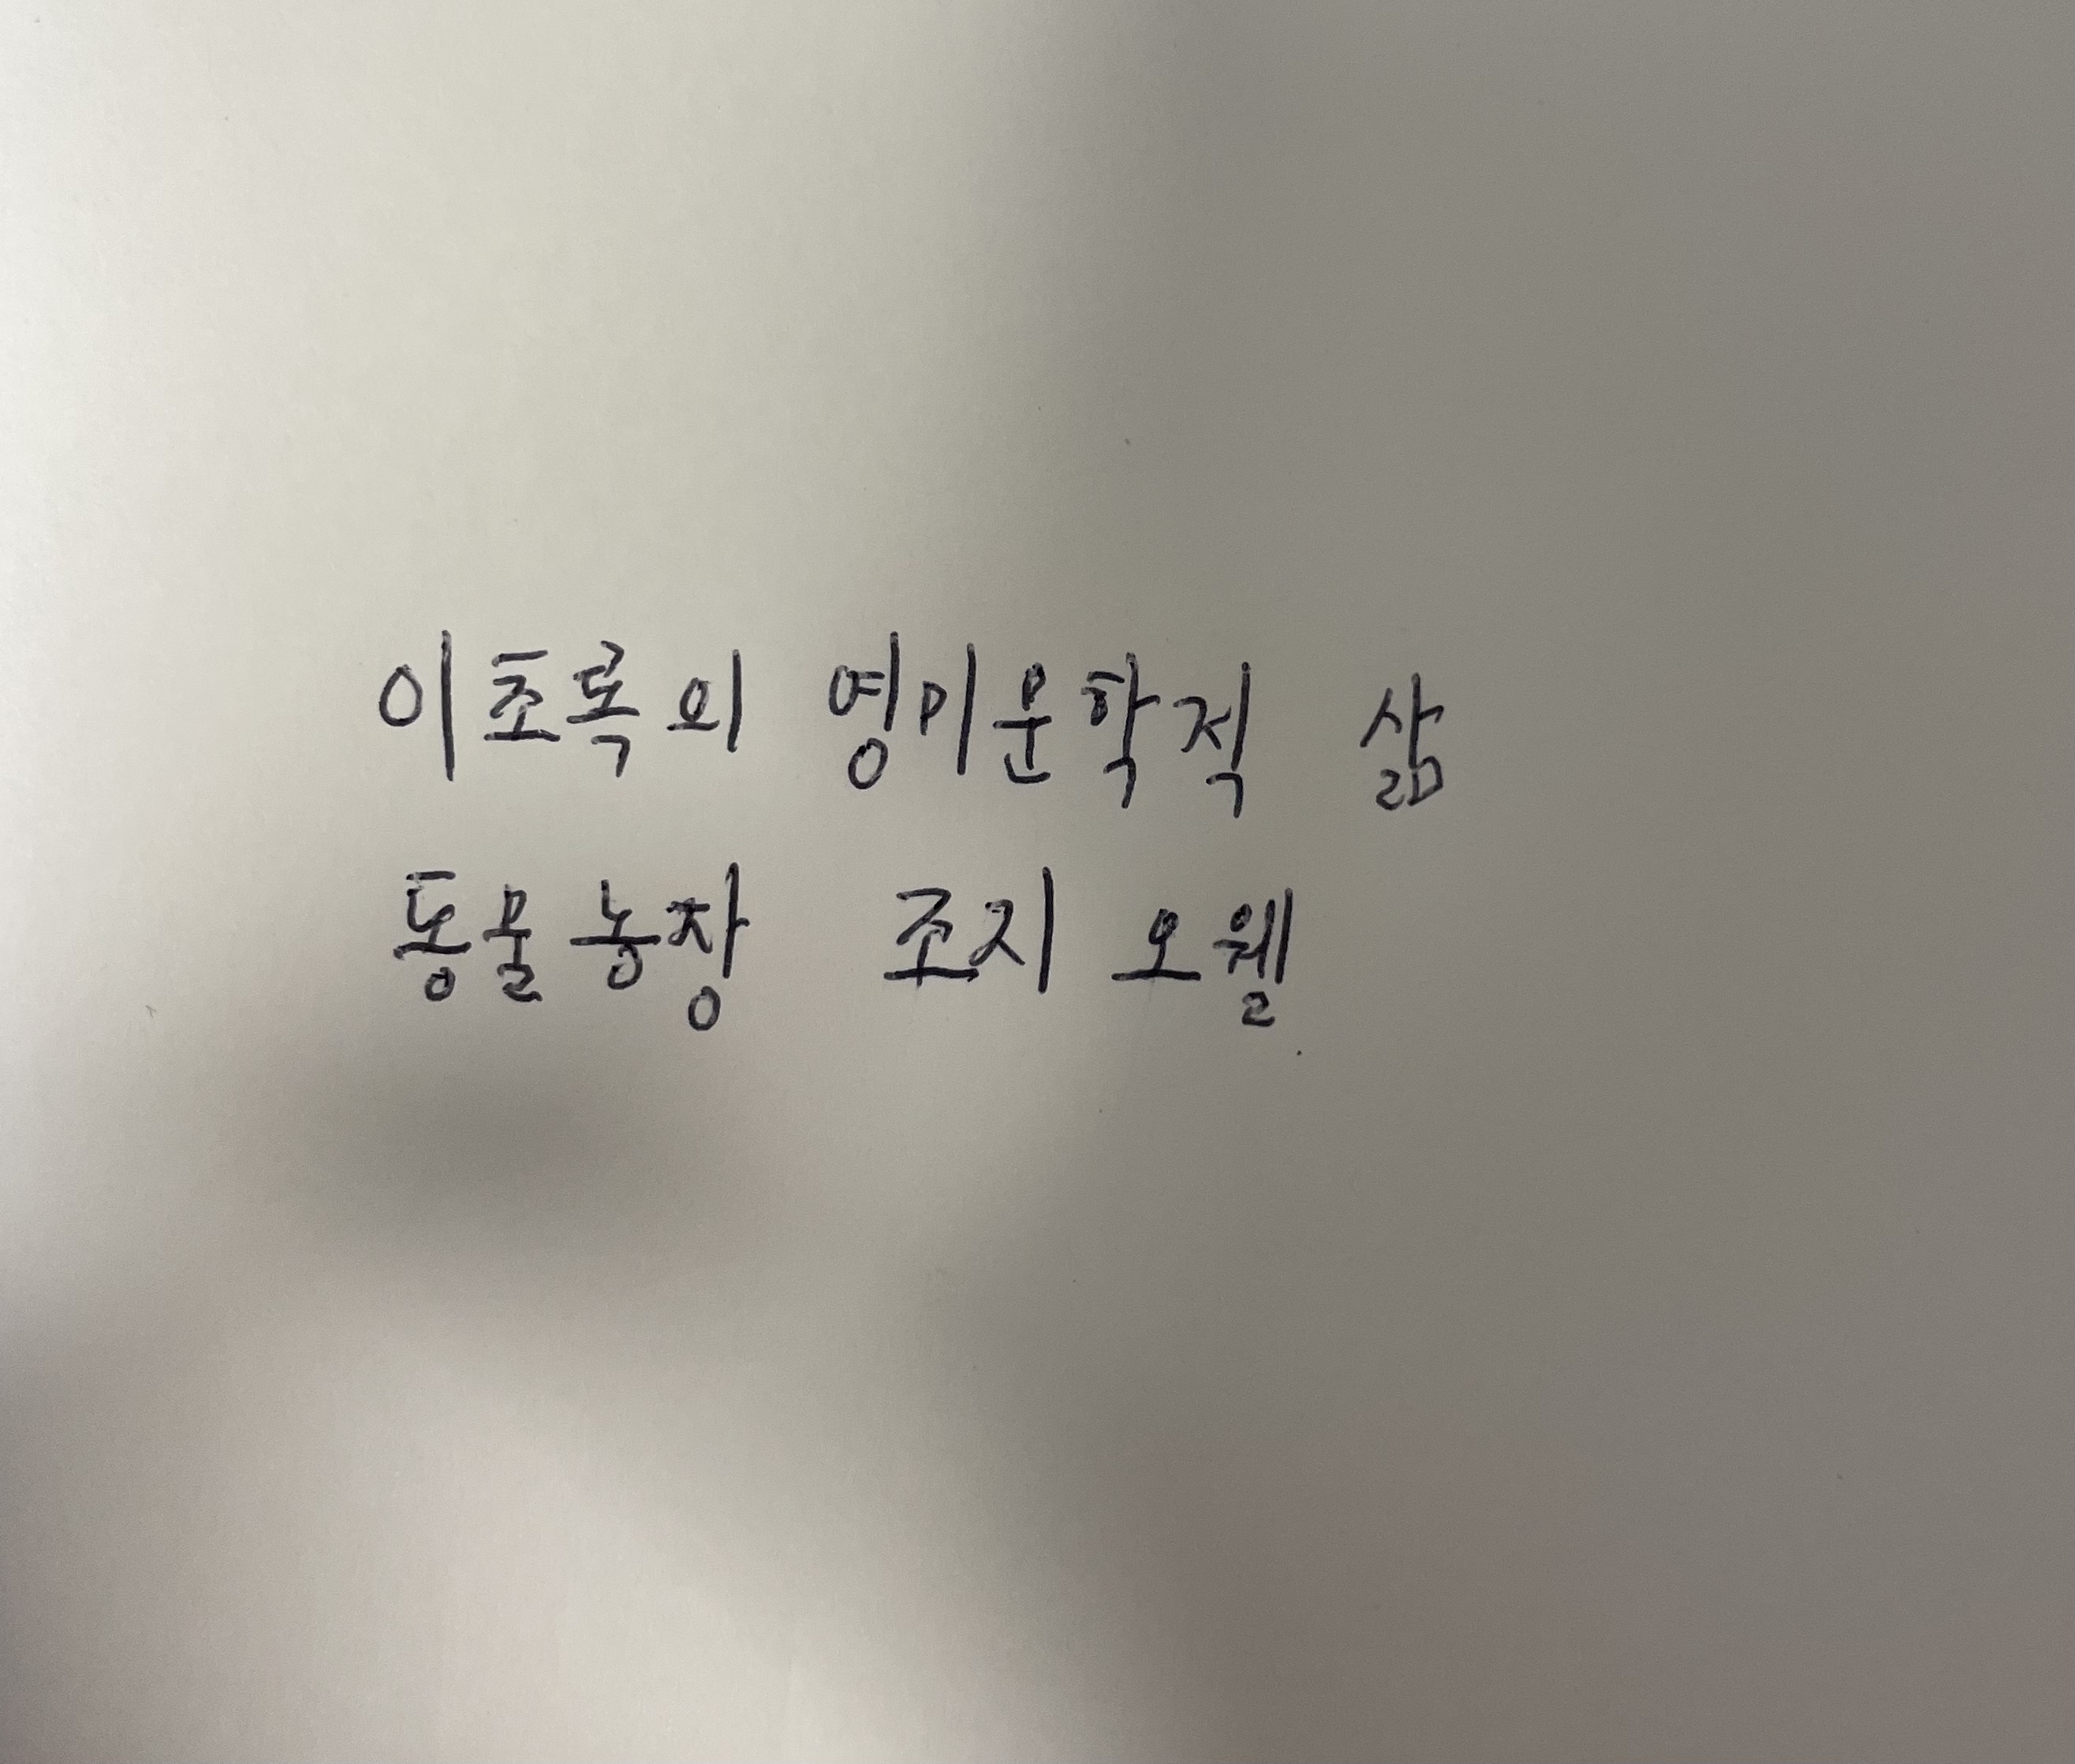 이초록의 영미문학적 삶
동물농장 조지 오웰